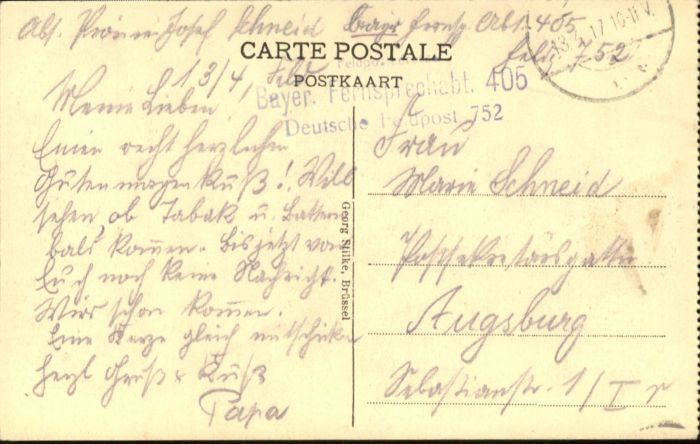 Abs. Pionier Josef Schneid Bayr. Fernsp. Abt. 405
Feldp. 752
CARTE POSTALE
POSTKAART
13/4,
Bayer. Fernsprechabt. 405
Deutsche Feldpost 752
13.4.17.10-11V.
Meine Lieben!
Einen recht herzlichen
Gutenmorgen Kuß! Will
sehen ob Tabak u. Batterie
bald kommen. Bis jetzt von
Euch noch keine Nachricht.
Wird schon kommen.
Eine Kerze gleich mitschicken
Herzl Gruß & Kuß
Papa
Georg Stilke, Brüssel
Frau
Marie Schneid
Postsekretärsgattin
Augsburg
Sebastianstr. 1/I r